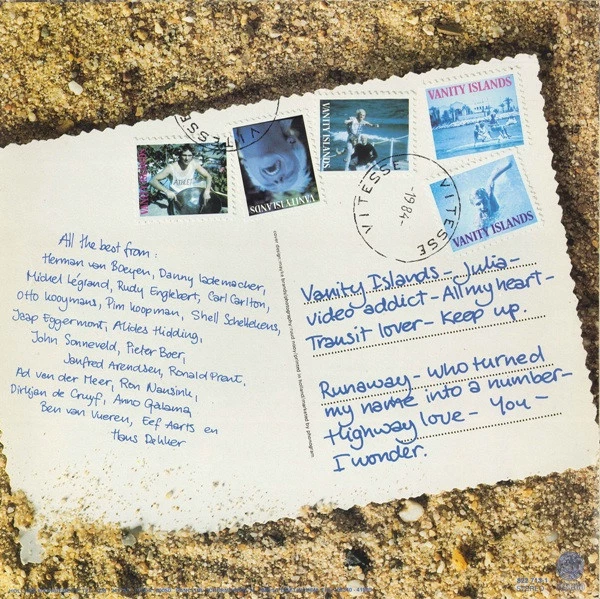 VANITY ISLANDS
VANITY ISLANDS
VANITY ISLANDS
VANITY ISLANDS
VITESSE
VITESSE
-1984-
VITESSE
VITESSE
VANITY ISLANDS
All the best from:
Herman van Boeyen, Danny Lademacher,
Michel Légrand, Rudy Englebert, Carl Carlton,
Otto Kooymans, Pim Koopman, Shell Schellekens,
Jaap Eggermont, Alides Hidding,
John Sonneveld, Pieter Boer,
Janfred Arendsen, Ronald Prent,
Ad van der Meer, Ron Nausink,
Dirkjan de Cruyf, Anno Galama,
Ben van Vueren, Eef Aarts en
Hans Dekker
Vanity Islands - Julia -
video addict - All my heart -
Transit lover - Keep up.
Runaway - Who turned
my name into a number -
Highway love - You -
I wonder.